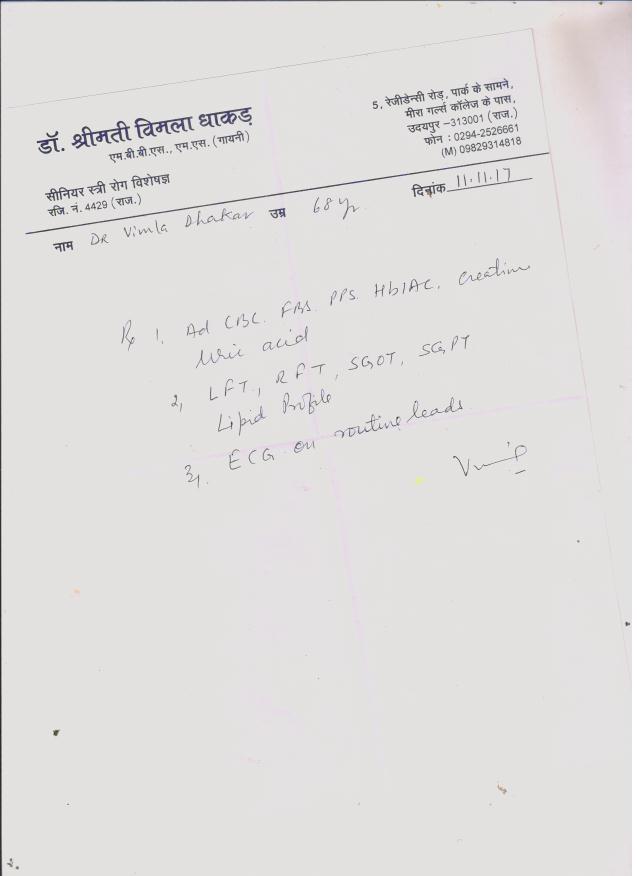 डॉ. श्रीमती विमला धाकड़
एम.बी.बी.एस., एम.एस. (गायनी)
सीनियर स्त्री रोग विशेषज्ञ
रजि. नं. 4429 (राज.)
5, रेजीडेन्सी रोड़, पार्क के सामने,
मीरा गर्ल्स कॉलेज के पास,
उदयपुर –313001 (राज.)
फोन : 0294-2526661
(M) 09829314818
दिनांक 11.11.17
नाम DR Vimla Dhakar उम्र 68 yr
Rx 1. Ad CBC. FBS. PPS. Hb1AC. Creatinine
Uric acid
2, LFT, RFT, SGOT, SGPT
Lipid Profile
3, ECG on routine leads.